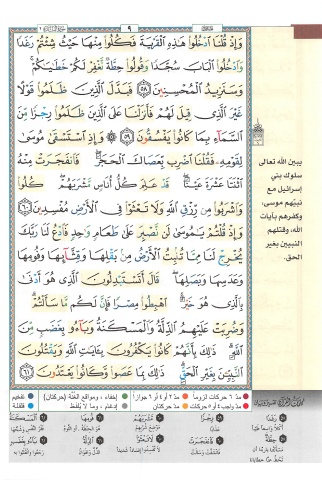 ٩
وَإِذْ قُلْنَا ٱدْخُلُوا۟ هَٰذِهِ ٱلْقَرْيَةَ فَكُلُوا۟ مِنْهَا حَيْثُ شِئْتُمْ رَغَدًا
وَٱدْخُلُوا۟ ٱلْبَابَ سُجَّدًا وَقُولُوا۟ حِطَّةٌ نَّغْفِرْ لَكُمْ خَطَٰيَٰكُمْ ۚ
وَسَنَزِيدُ ٱلْمُحْسِنِينَ ٥٨ فَبَدَّلَ ٱلَّذِينَ ظَلَمُوا۟ قَوْلًا
غَيْرَ ٱلَّذِى قِيلَ لَهُمْ فَأَنزَلْنَا عَلَى ٱلَّذِينَ ظَلَمُوا۟ رِجْزًا مِّنَ
ٱلسَّمَآءِ بِمَا كَانُوا۟ يَفْسُقُونَ ٥٩ ۞ وَإِذِ ٱسْتَسْقَىٰ مُوسَىٰ
لِقَوْمِهِۦ فَقُلْنَا ٱضْرِب بِّعَصَاكَ ٱلْحَجَرَ ۖ فَٱنفَجَرَتْ مِنْهُ
ٱثْنَتَا عَشْرَةَ عَيْنًا ۖ قَدْ عَلِمَ كُلُّ أُنَاسٍ مَّشْرَبَهُمْ ۖ كُلُوا۟
وَٱشْرَبُوا۟ مِن رِّزْقِ ٱللَّهِ وَلَا تَعْثَوْا۟ فِى ٱلْأَرْضِ مُفْسِدِينَ ٦٠
وَإِذْ قُلْتُمْ يَٰمُوسَىٰ لَن نَّصْبِرَ عَلَىٰ طَعَامٍ وَٰحِدٍ فَٱدْعُ لَنَا رَبَّكَ
يُخْرِجْ لَنَا مِمَّا تُنۢبِتُ ٱلْأَرْضُ مِنۢ بَقْلِهَا وَقِثَّآئِهَا وَفُومِهَا
وَعَدَسِهَا وَبَصَلِهَا ۖ قَالَ أَتَسْتَبْدِلُونَ ٱلَّذِى هُوَ أَدْنَىٰ
بِٱلَّذِى هُوَ خَيْرٌ ۚ ٱهْبِطُوا۟ مِصْرًا فَإِنَّ لَكُم مَّا سَأَلْتُمْ ۗ
وَضُرِبَتْ عَلَيْهِمُ ٱلذِّلَّةُ وَٱلْمَسْكَنَةُ وَبَآءُو بِغَضَبٍ مِّنَ
ٱللَّهِ ۗ ذَٰلِكَ بِأَنَّهُمْ كَانُوا۟ يَكْفُرُونَ بِـَٔايَٰتِ ٱللَّهِ وَيَقْتُلُونَ
ٱلنَّبِيِّـۧنَ بِغَيْرِ ٱلْحَقِّ ۗ ذَٰلِكَ بِمَا عَصَوا۟ وَّكَانُوا۟ يَعْتَدُونَ ٦١
يبين الله تعالى
سلوك بني
إسرائيل مع
نبيّهم موسى،
وكفرهم بآيات
الله، وقتلهم
النبيين بغير
الحق.
مدّ ٦ حركات لزوماً مدّ ٢ أو ٤ أو ٦ جوازاً إخفاء، ومواقع الغُنَّة (حركتان) تفخيم
مدّ واجب ٤ أو ٥ حركات مدّ حركتان إدغام، وما لا يُلفَظ قلقلة